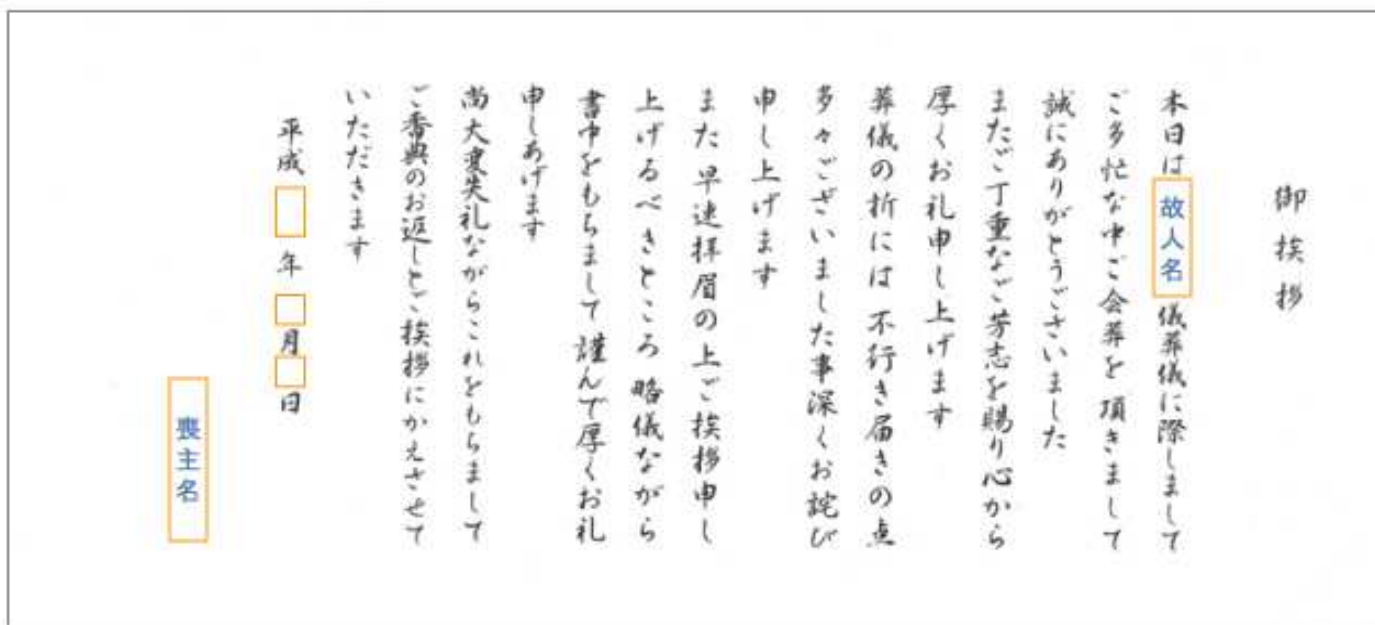 御挨拶
本日は 故人名 儀葬儀に際しまして
ご多忙な中ご会葬を頂きまして
誠にありがとうございました
またご丁重なご芳志を賜り心から
厚くお礼申し上げます
葬儀の折には 不行き届きの点
多々ございました事深くお詫び
申し上げます
また 早速拝眉の上ご挨拶申し
上げるべきところ 略儀ながら
書中をもちまして 謹んで厚くお礼
申しあげます
尚大変失礼ながらこれをもちまして
ご香典のお返しとご挨拶にかえさせて
いただきます
平成 年 月 日
喪主名